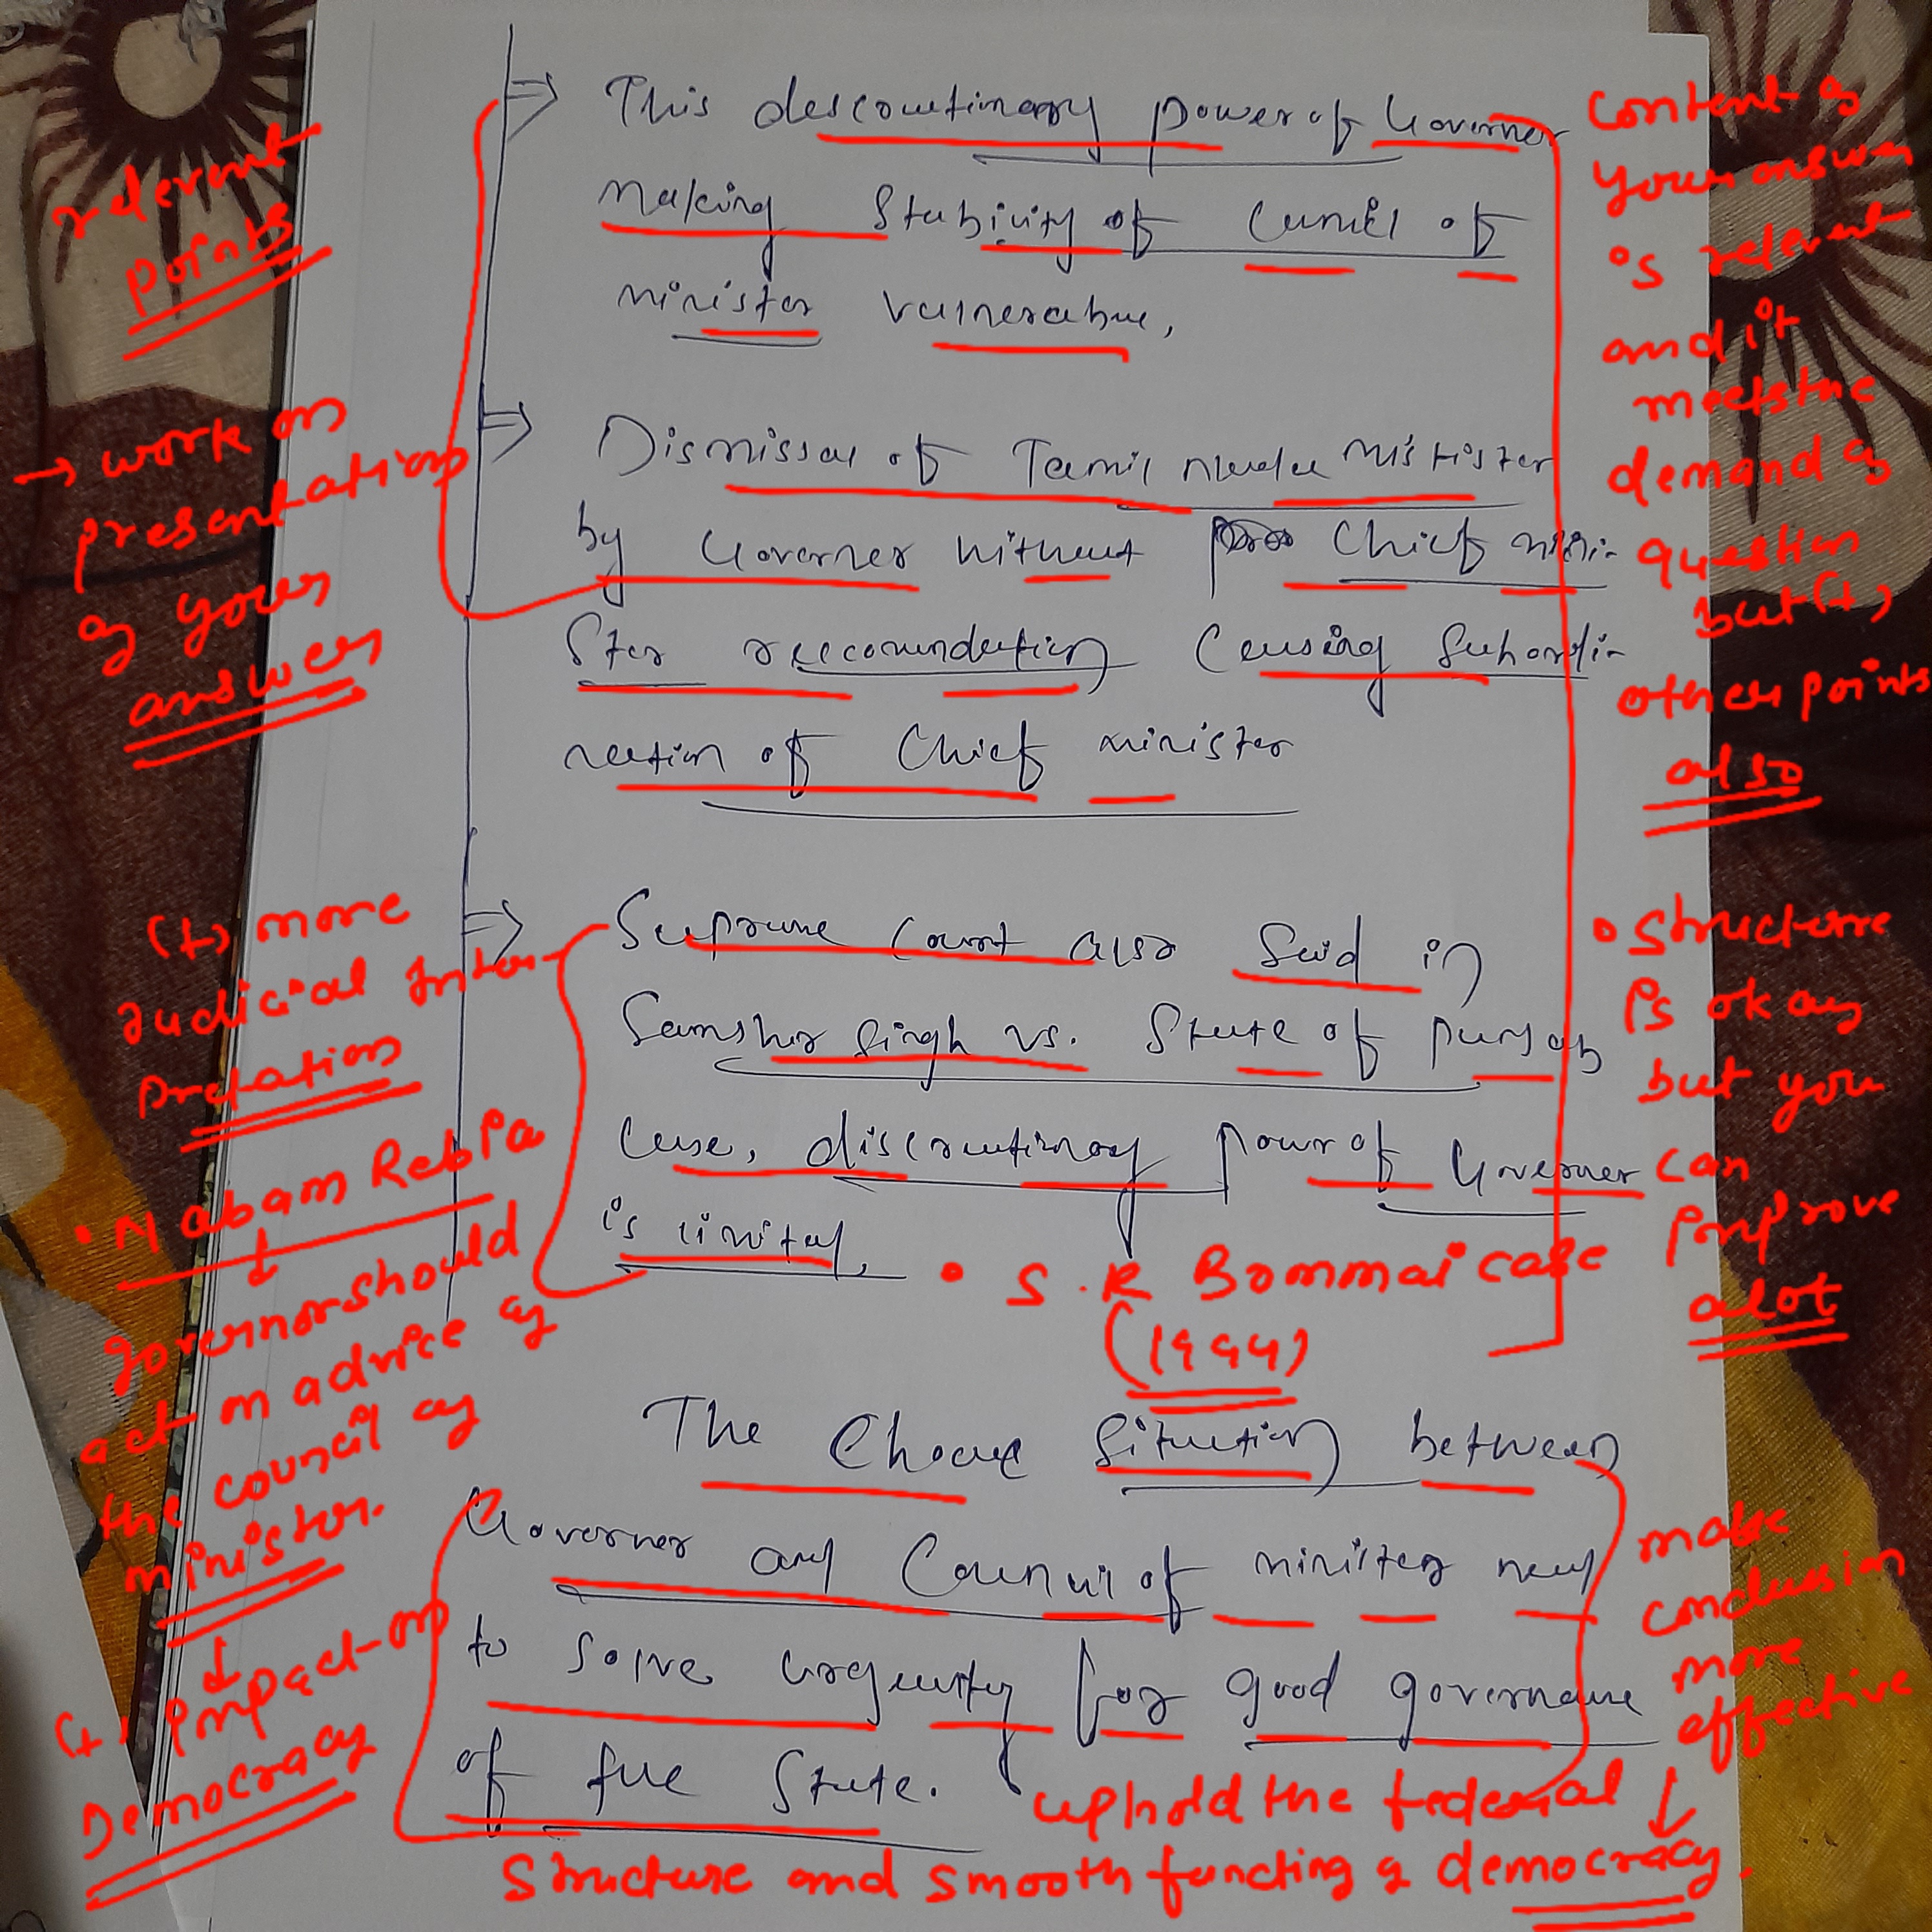 ⇒ This descouetinary power of Governer
making Stability of Cuncil of
minister vulnerable,
⇒ Dismissal of Tamil nadu ministor
by Governer without Chief mini-
Ster reecomendation Causing Subordi-
nation of Chief minister
⇒ Supreme Court also Said in
Samsher Singh vs. State of punjab
Case, discreetinary power of Governer
is limited.
The Choas Situation between
Governer and Council of minister need
to solve urgently for good governance
of the State.
relevent
points
→ work on
presentation
of your
answer
(+) more
Judicial Inter-
pretation
• Nabam Rebia
↓
governor should
act on advice of
the council of
minister.
↓
(+) Impact on
Democracy
content of
your answer
is relevent
and it
meets the
demand of
question
but (+)
other points
also
• structure
is okay
but you
can
improve
alot
• S.R Bommai case
(1994)
make
conclusion
more
effective
↓
uphold the federal
structure and smooth functing of democracy.